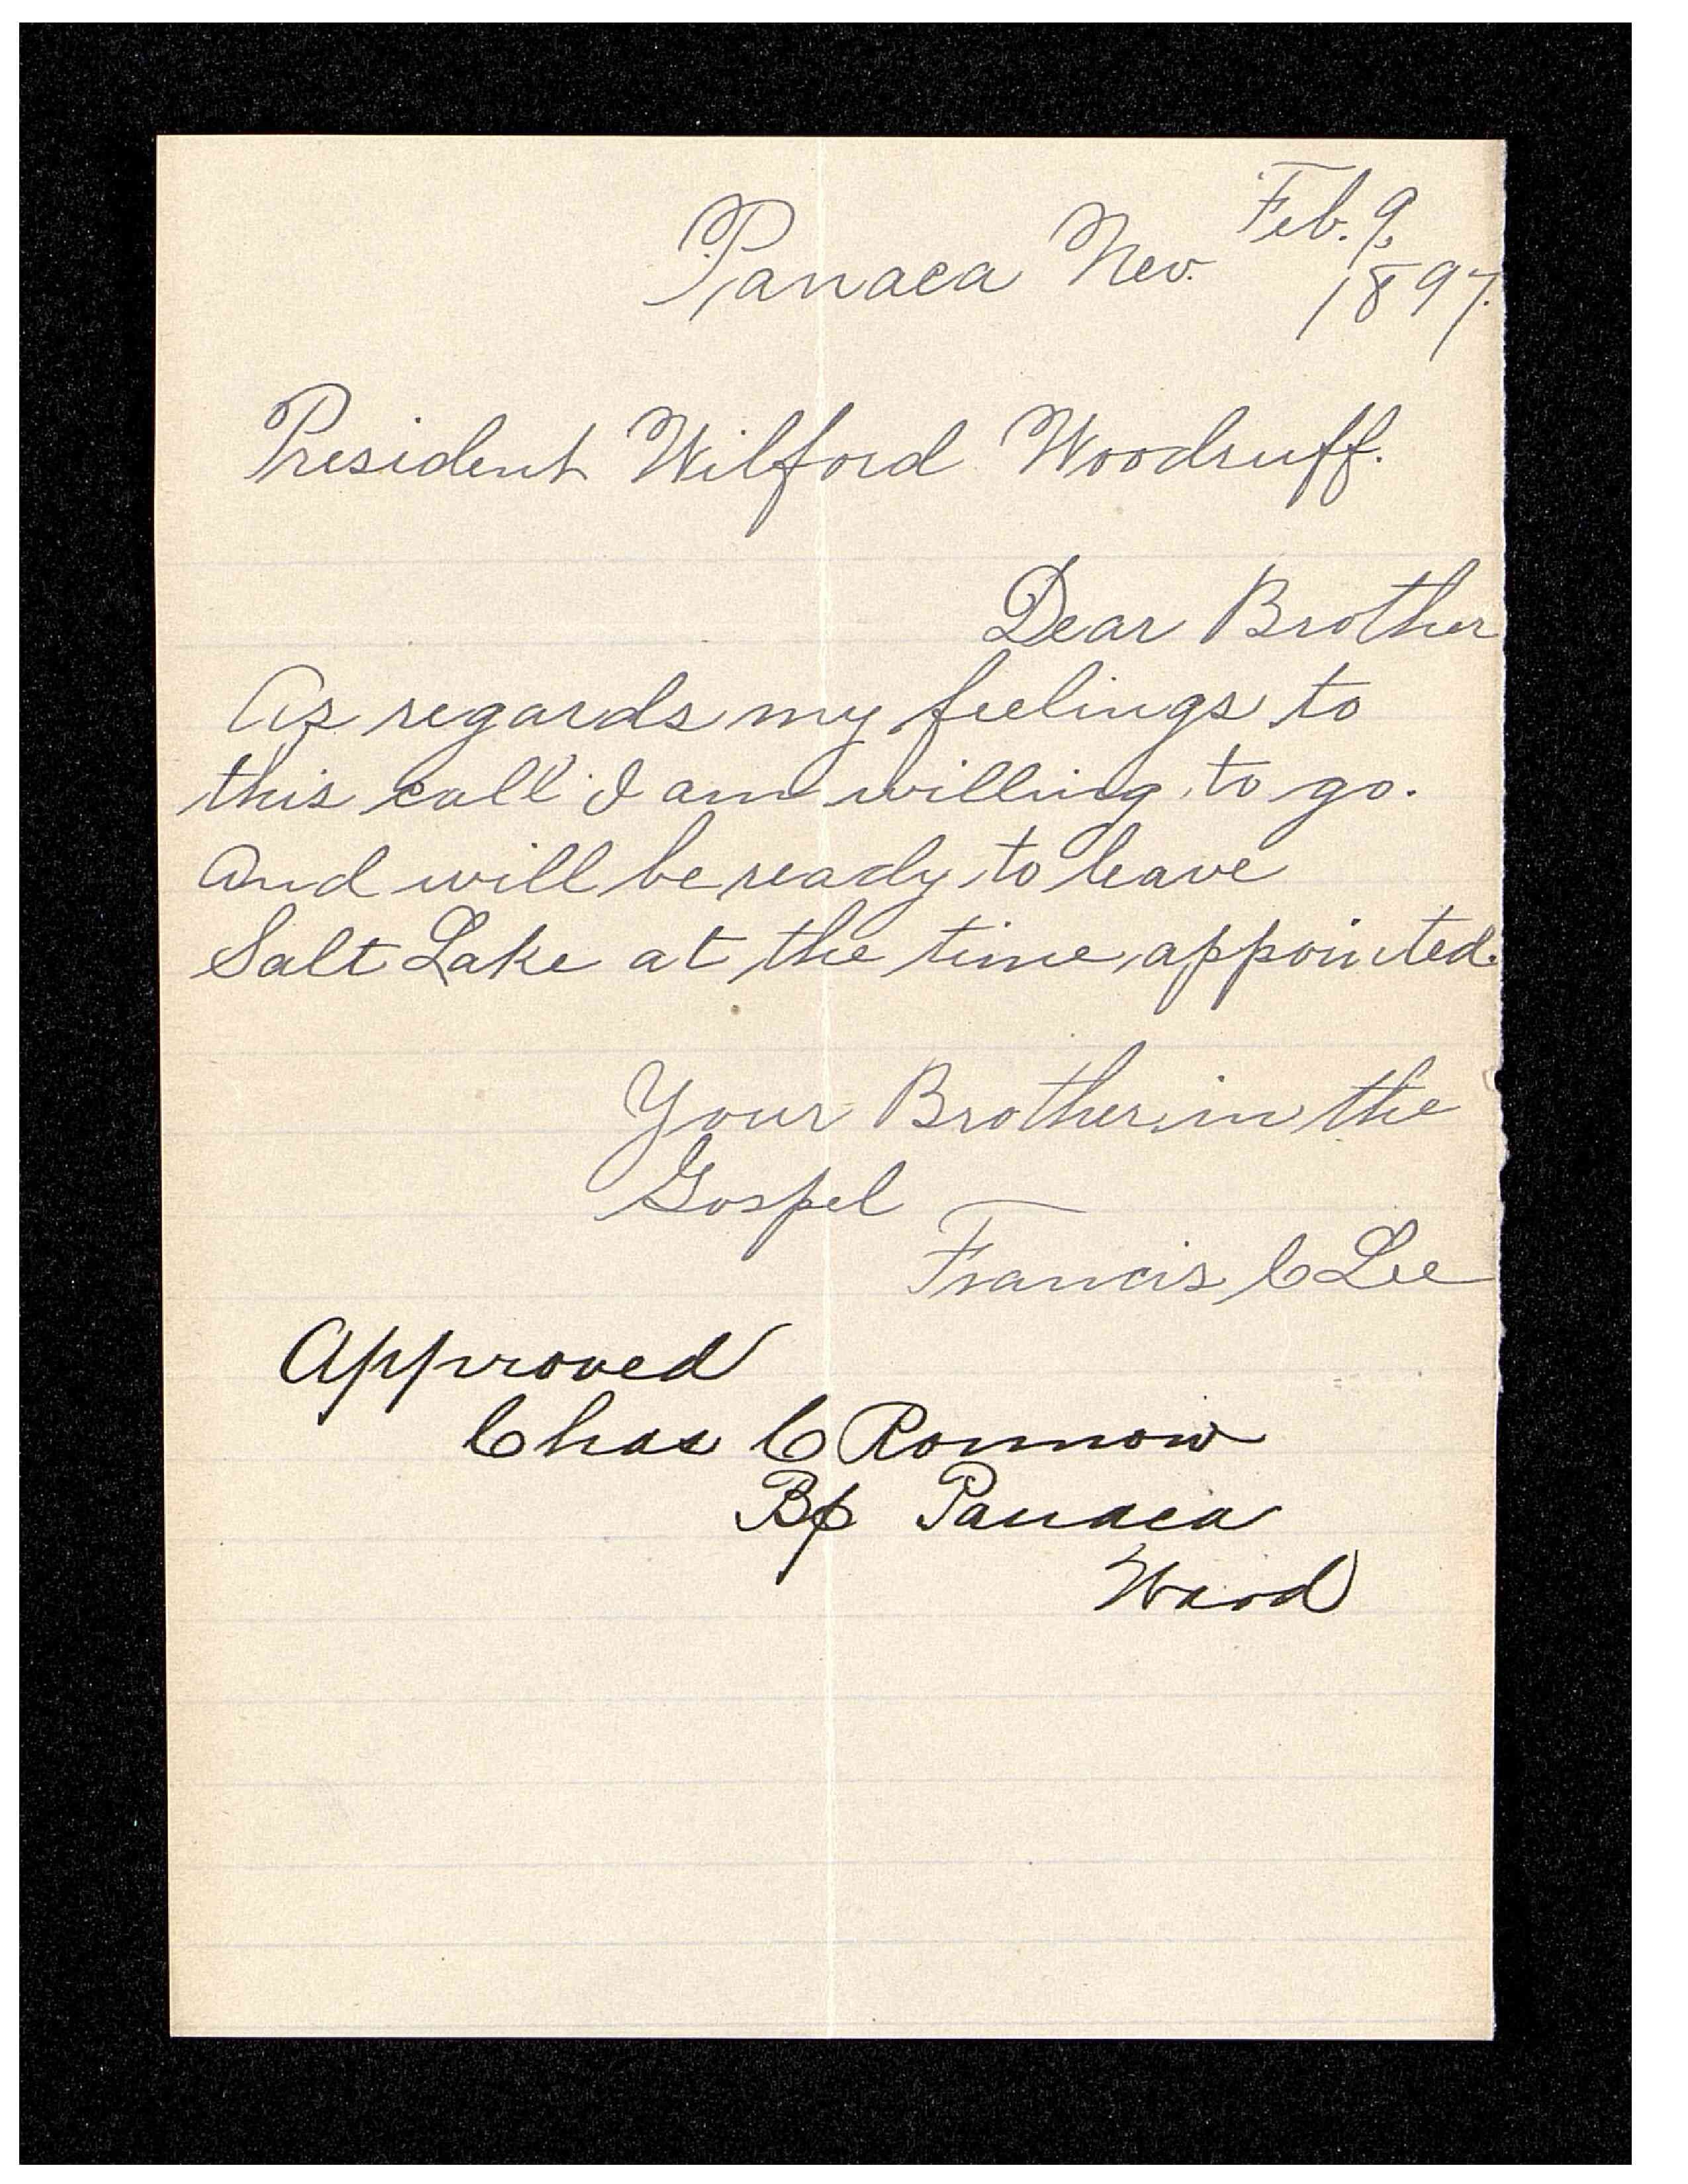 Feb. 9,
Panaca Nev. 1897.
President Wilford Woodruff.
Dear Brother
As regards my feelings to
this call I am willing to go.
And will be ready to leave
Salt Lake at the time appointed.
Your Brother in the
Gospel
Francis C Lee
Approved
Chas C Ronnow
Bp Panaca
Ward